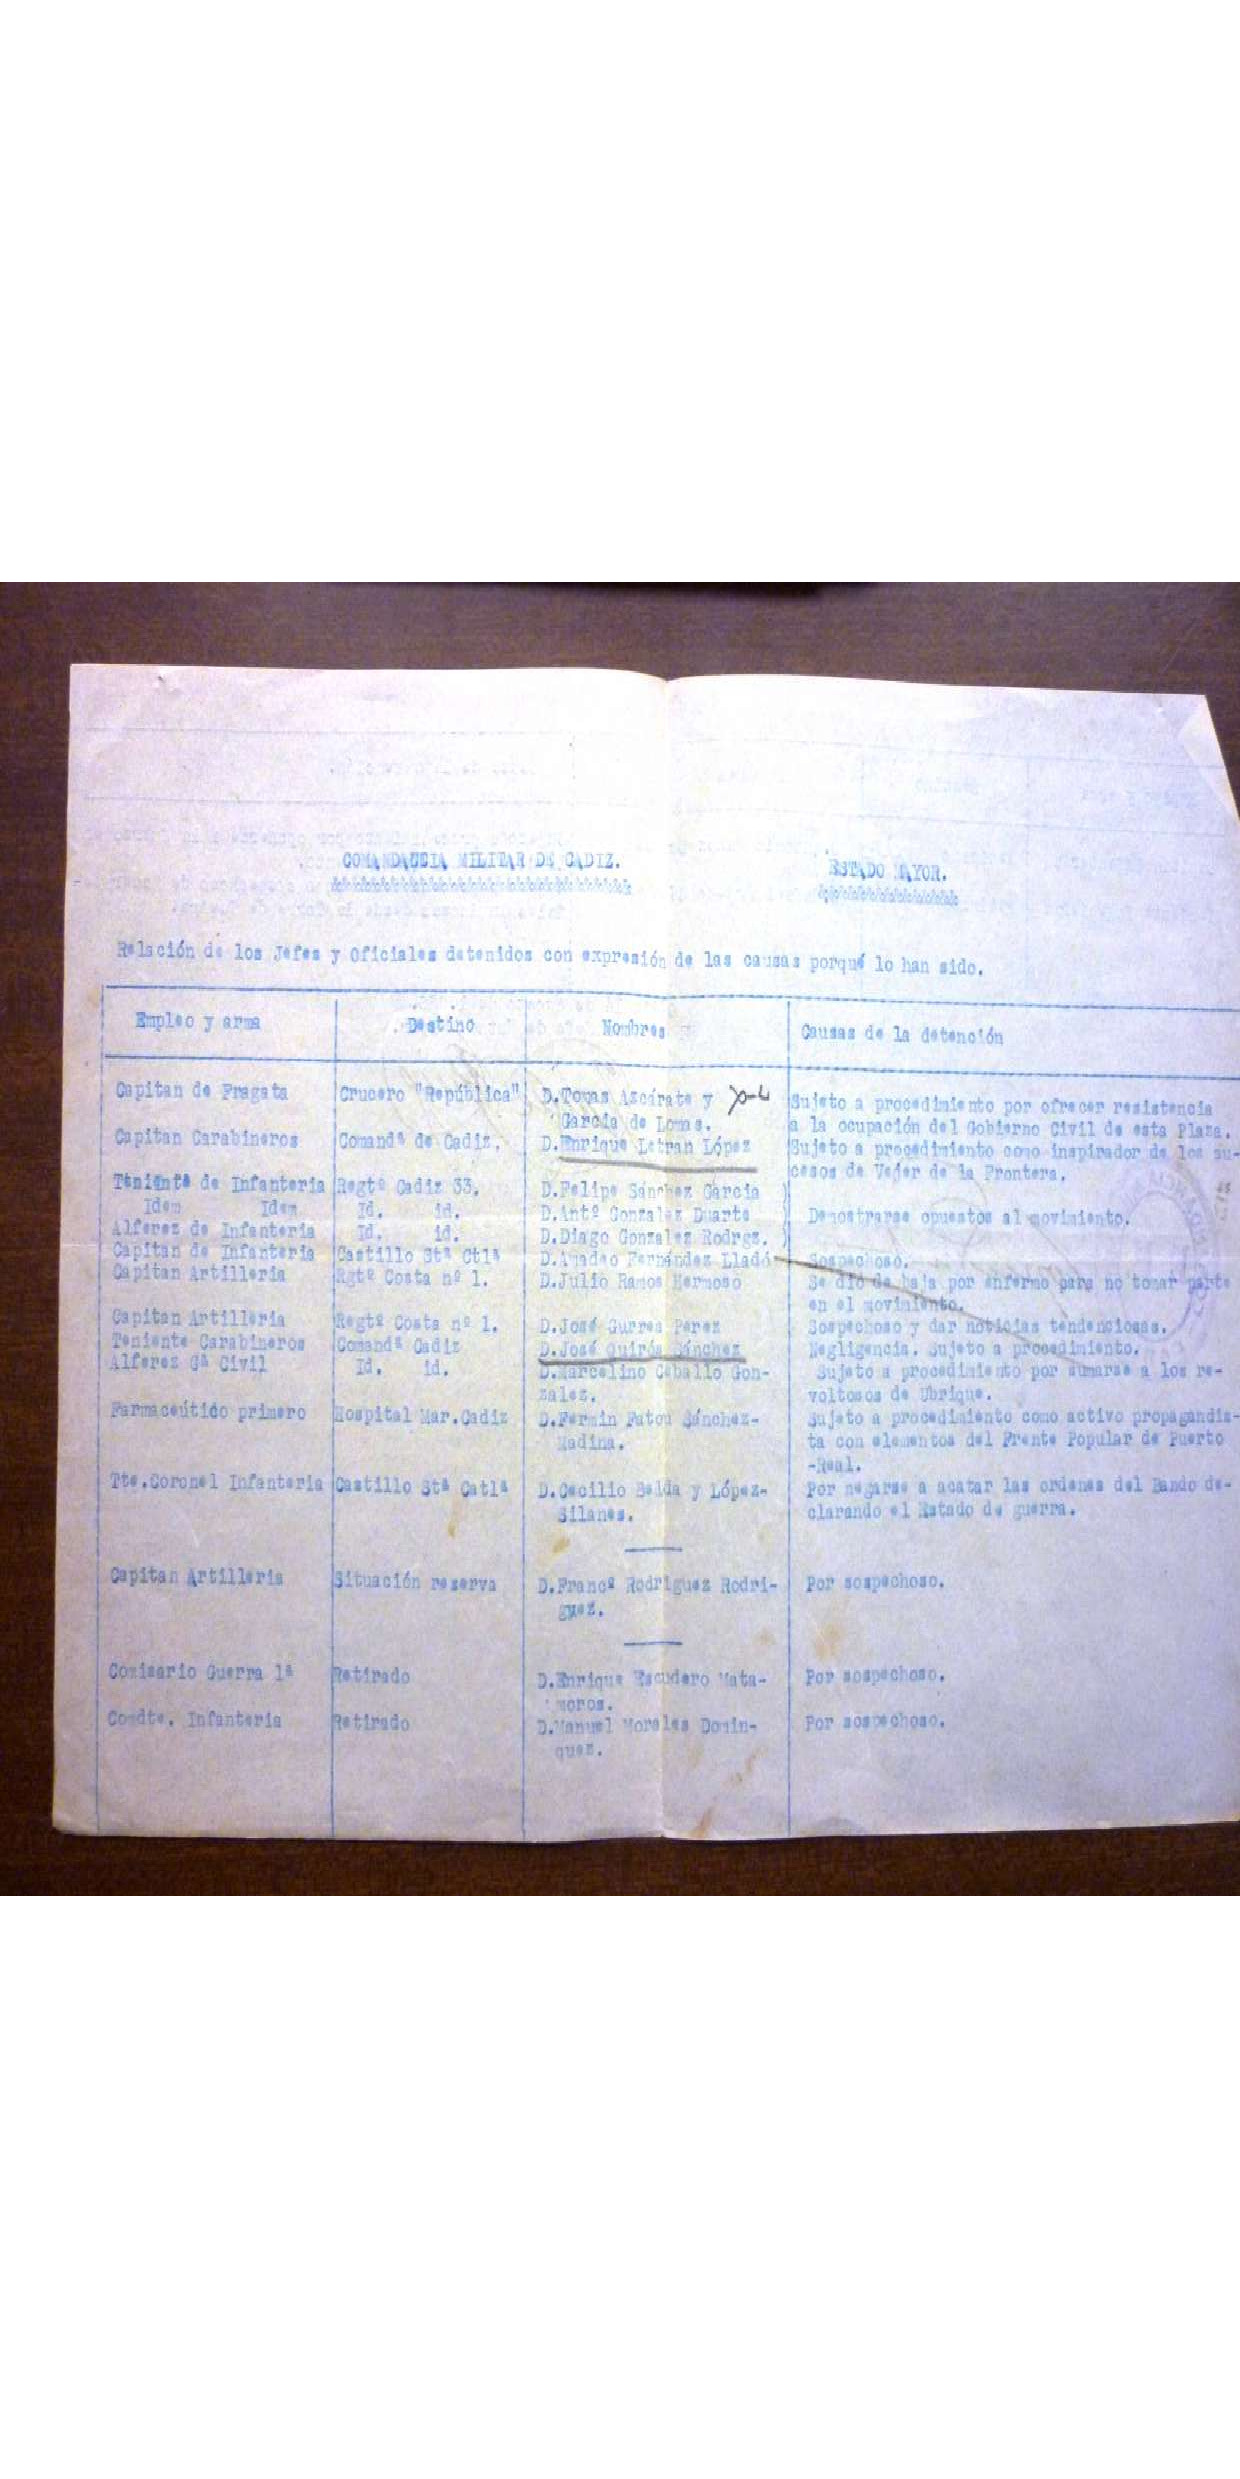 COMANDACCIA MILITAR DE CADIZ. ESTADO MAYOR.
Relación de los Jefes y Oficiales detenidos con expresión de las causas porqué lo han sido.
Empleo y arma Destino Nombres Causas de la detención
Capitan de Fragata Crucero "República" D.Tomas Azcárate y Sujeto a procedimiento por ofrecer resistencia
García de Lomas. a la ocupación del Gobierno Civil de esta Plaza.
Capitan Carabineros Comandª de Cadiz. D.Enrique Letran López Sujeto a procedimiento como inspirador de los su-
cesos de Vejer de la Frontera.
Teniente de Infanteria Regtº Cadiz 33. D.Felipe Sánchez Garcia )
Idem Idem Id. id. D.Antº Gonzalez Duarte ) Demostrarse opuestos al movimiento.
Alferez de Infanteria Id. id. D.Diago Gonzalez Rodrgz. )
Capitan de Infanteria Castillo Stª Ctlª D.Amadeo Fernández Lladó Sospechoso.
Capitan Artilleria Rgtº Costa nº 1. D.Julio Ramos Hermoso Se dió de baja por enfermo para no tomar parte
en el movimiento.
Capitan Artilleria Regtº Costa nº 1. D.José Gurrea Perez Sospechoso y dar noticias tendenciosas.
Teniente Carabineros Comandª Cadiz D.José Quirós Sánchez Negligencia. Sujeto a procedimiento.
Alferez Gª Civil Id. id. D.Marcelino Ceballo Gon- Sujeto a procedimiento por sumarse a los re-
zalez. voltosos de Ubrique.
Farmaceútido primero Hospital Mar.Cadiz D.Fermin Fatou Sánchez- Sujeto a procedimiento como activo propagandis-
Madina. ta con elementos del Frente Popular de Puerto
-Real.
Tte.Coronel Infanteria Castillo Stª Catlª D.Cecilio Beida y López- Por negarse a acatar las ordenes del Bando de-
Silanes. clarando el Estado de guerra.
Capitan Artilleria Situación reserva D.Francº Rodriguez Rodri- Por sospechoso.
guez.
Comisario Guerra 1ª Retirado D.Enrique Escudero Mata- Por sospechoso.
moros.
Comdte. Infanteria Retirado D.Manuel Morales Domin- Por sospechoso.
quez.